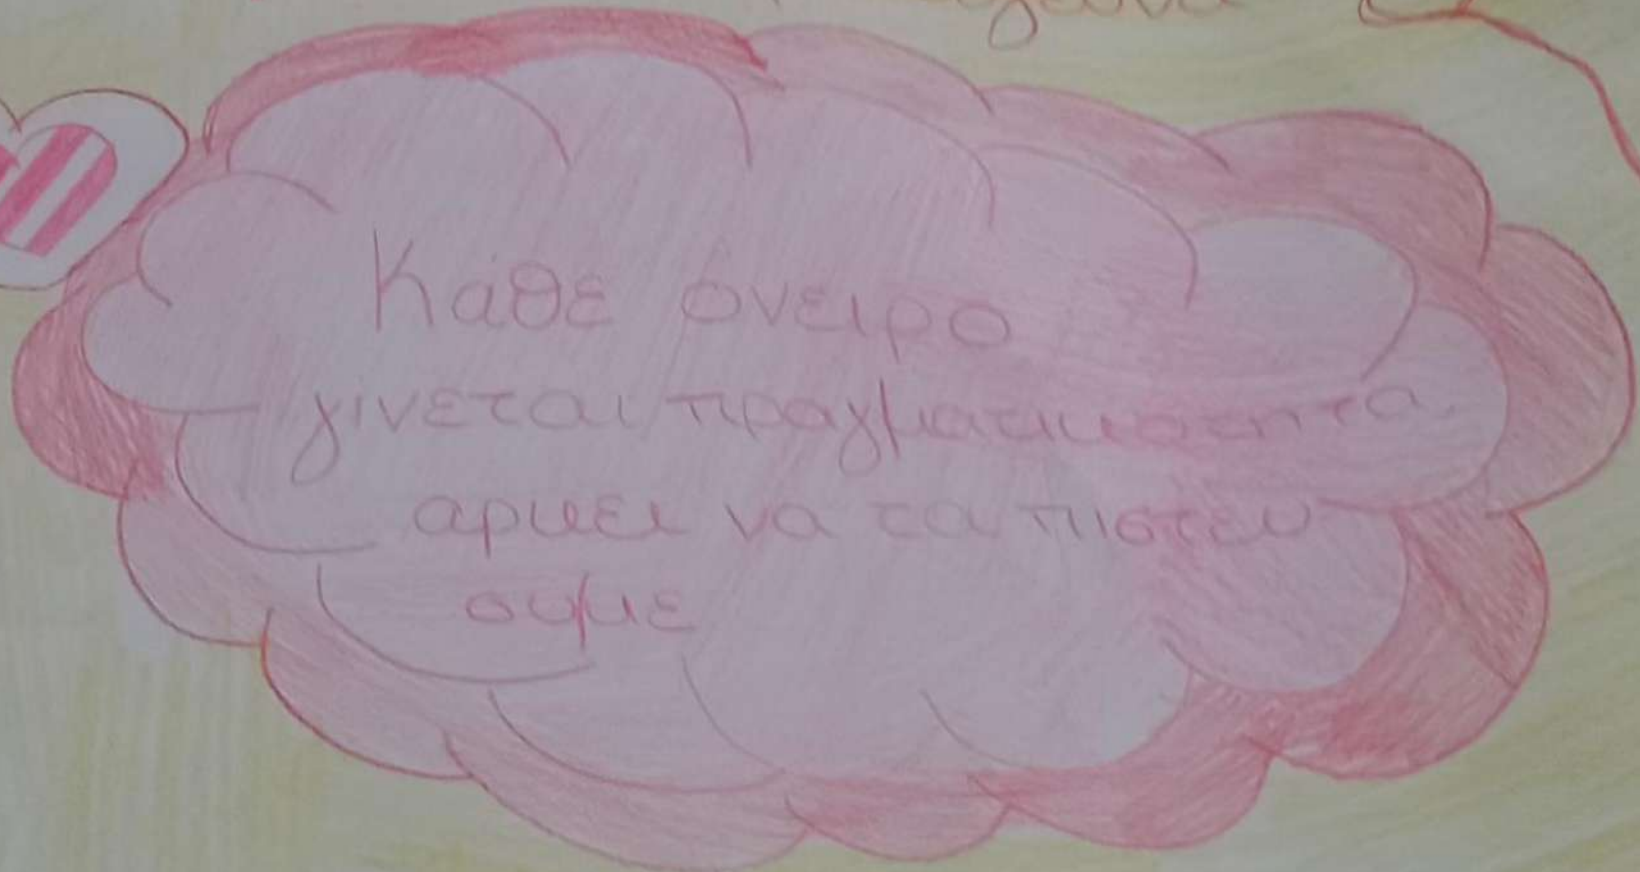 Κάθε όνειρο
γίνεται πραγματικότητα
αρκεί να τα πιστεύ
ουμε